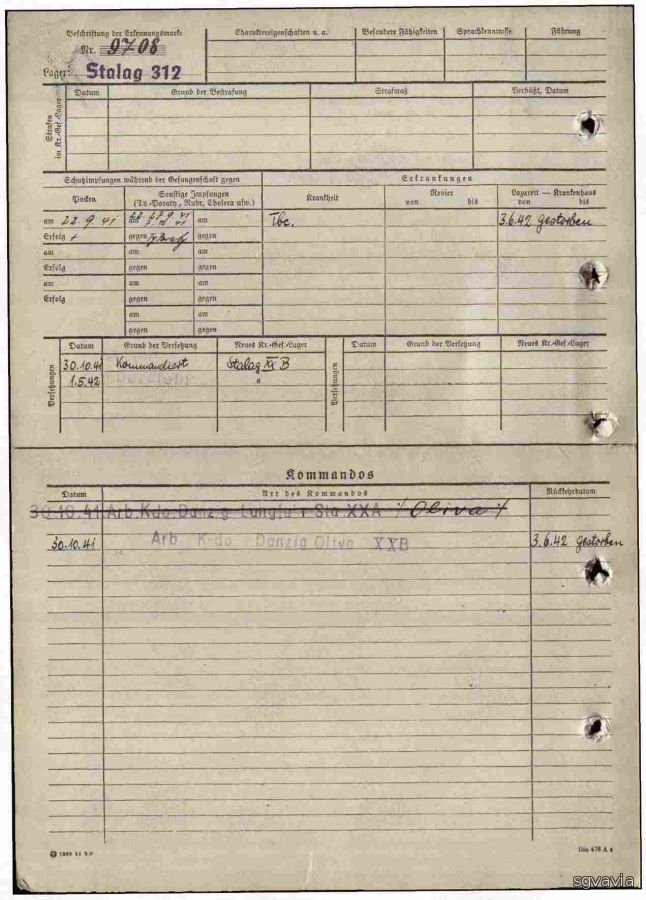 Beschriftung der Erkennungsmarke
Nr. 9708
Lager: Stalag 312
Charaktereigenschaften u. a.
Besondere Fähigkeiten
Sprachkenntnisse
Führung
Strafen im Kr.-Gef.-Lager
Datum
Grund der Bestrafung
Strafmaß
Verbüßt, Datum
Schutzimpfungen während der Gefangenschaft gegen
Erkrankungen
Pocken
Sonstige Impfungen
(Ty.-Paraty., Ruhr, Cholera usw.)
Krankheit
Revier
von bis
Lazarett — Krankenhaus
von bis
am 22.9.41 am
Tbc.
3.6.42 gestorben
Erfolg + gegen gegen
am am am
Erfolg gegen gegen
am am am
Erfolg gegen gegen
am am
gegen gegen
Versetzungen
Datum Grund der Versetzung Neues Kr.-Gef.-Lager
Versetzungen
Datum Grund der Versetzung Neues Kr.-Gef.-Lager
30.10.41 Kommandiert Stalag XX B
1.5.42 "
Kommandos
Datum Art des Kommandos Rückkehrdatum
30.10.41 Arb.Kdo.Danzig Sta.XXA Oliva
30.10.41 Arb K-do Danzig Oliva XXB 3.6.42 gestorben
Din 476 A 4
sgvavia